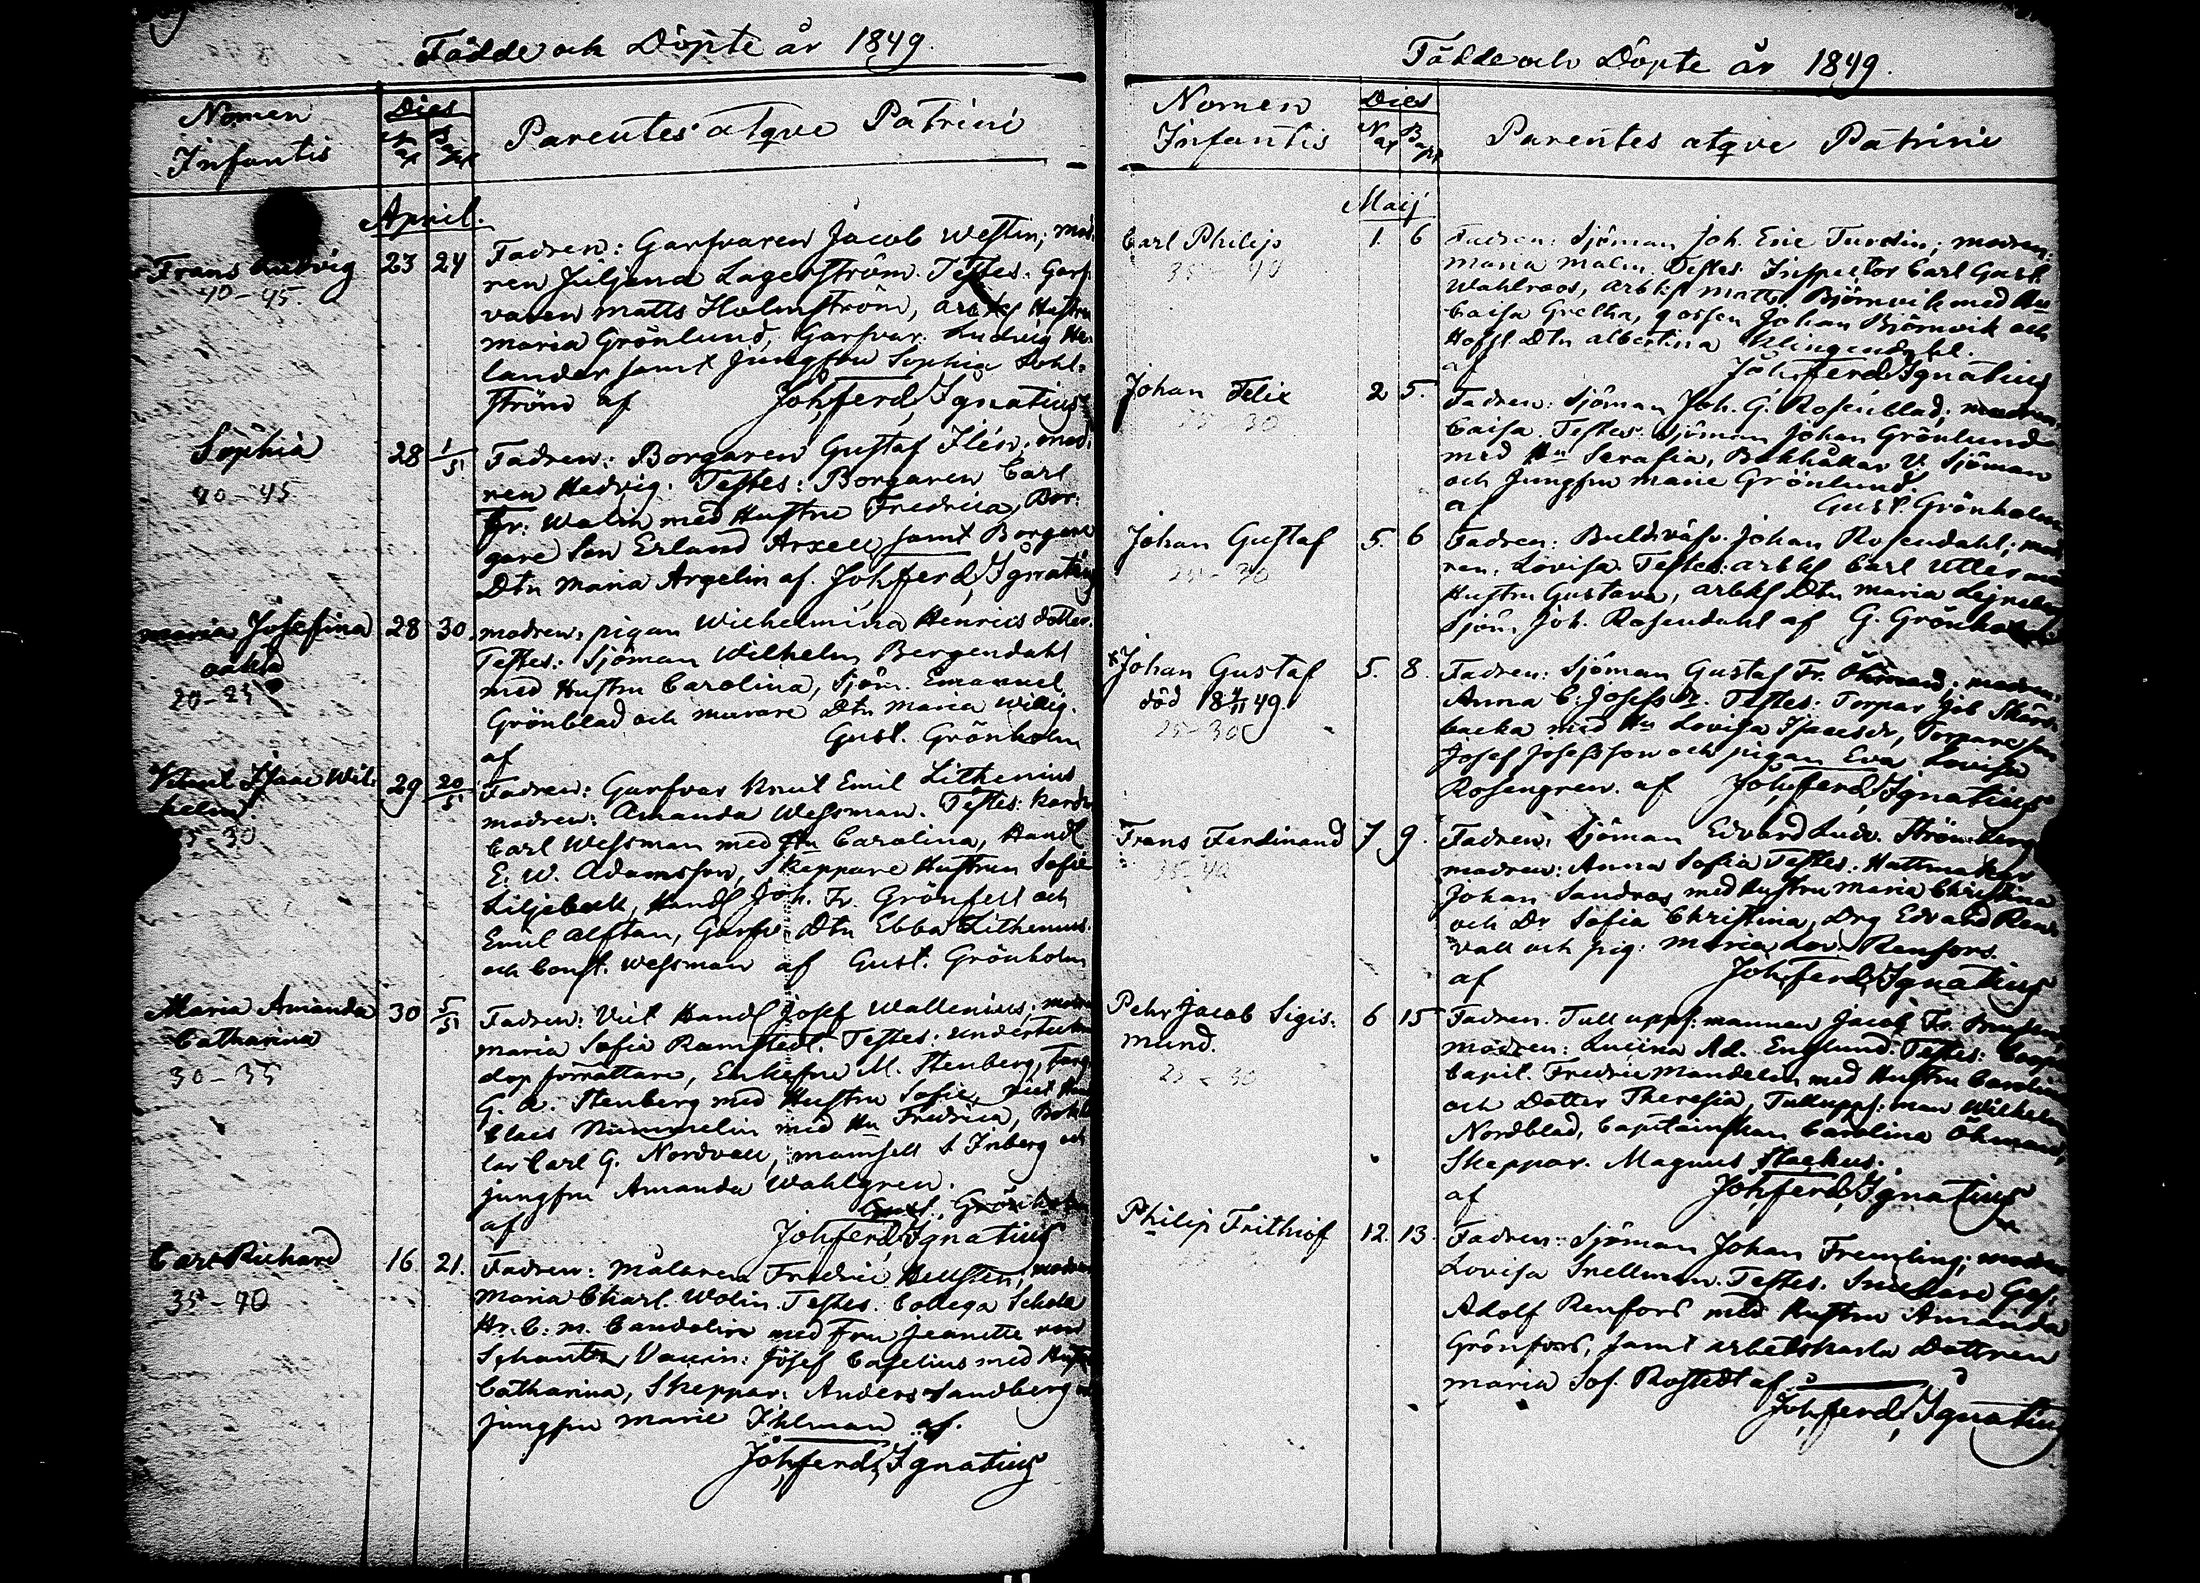 Födde och Döpte år 1849.
Nomen Infantis
Dies
Nat Bapt
Parentes atqve Patrini
April.
Frans Ludvig 23 24
40-45.
Fadren: Garfvaren Jacob Westin; mod-
ren Juljana Lagerström. Testes: Garf-
varen Matts Holmström, Hustru
Maria Grönlund, Garfvar: Ludvig He-
lander samt Jungfru Sophia Dahl-
ström af Joh, ferd, Ignatius
Sophia 28 1/5
40-45
Fadren: Borgaren Gustaf Ilén; mod-
ren Hedvig. Testes: Borgaren Carl
Fr: Walin med Hustru Fredrica, Bor-
gare Son Erland Arxell samt Borgare
Dtn Maria Argelin af. Joh, ferd, Ignatius
Maria Josefina 28 30.
oäkta
20-25
modren: pigan Wilhelmina Henricsdotter.
Testes: Sjöman Wilhelm Bergendahl
med Hustru Carolina, Sjöm. Emanuel
Grönblad och murare Dtn Maria Willig.
Gust. Grönholm
af
Knut Isaac Wil- 29 20/5
helm.
25-30
Fadren: Garfvar Knut Emil Lithenius
modren: Amanda Wessman. Testes:
Carl Wessman med Hu Carolina, Handl
E. W. Adamsson, Skeppare Hustrun Sofie
Liljebeck, Handl Joh. Fr. Grönfelt och
Emil Alftan, Garfv. Dtn Ebba Lithenius.
och Const. Wessman af Gust. Grönholm
Maria Amanda 30 5/5
Catharina
30-35
Fadren: Vict Handl Josef Wallenius; modren
Maria Sofia Ramstedt. Testes:
dop förrättare, Enkefru M. Stenberg,
G. A. Stenberg med Hustru Sofie, Vict
Claes Nummelin med Hu Fredrica, Bokhål
lar Carl G. Nordvall, mamsell S Friberg och
jungfru Amanda Wahlgren.
Gust. Grönholm
af Joh, ferd, Ignatius
Carl Richard 16. 21.
35-40
Fadren: Målaren Fredric Hellsten, modren
Maria Charl. Wolin. Testes. Collega Scholæ
Hr. C: M. Candolin med Fru Jeanette von
Schantz, Josef Caselius med Hustru
Catharina, Skeppar: Anders Sandberg och
jungfru Marie Ihlman af.
Joh, ferd, Ignatius
Födde och Döpte år 1849.
Nomen Infantis
Dies
Nat Bapt
Parentes atqve Patrini
Maij
Carl Philip 1. 6
35-40
Fadren: Sjöman Joh. Eric Turdin; modren:
Maria Malm. Testes: Inspector Carl Gust.
Wahlroos, arbkl Matts Björnvik med Hu
Caisa Gretha, gossen Johan Björnvik och
Hofsl Dtn Albertina Klingendahl.
af Joh, ferd, Ignatius
Johan Felix 2 5.
25-30
Fadren: Sjöman Joh. G. Rosenblad; modren
Caisa. Testes: Sjöman Johan Grönlund
med Hu Serafia, Bokhållar V. Sjöman
och Jungfru Marie Grönlund.
af Gust. Grönholm
Johan Gustaf 5. 6
25-30
Fadren: Buldväfv. Johan Rosendahl; mod-
ren, Lovisa. Testes: arbkl Carl
Hustru Gustava, arbkl Dtn Maria
Sjöm. Joh. Rosendahl af G. Grönholm
Johan Gustaf 5. 8.
död 18 4/11 49.
25-30
Fadren: Sjöman Gustaf Fr. Öhman; modren:
Anna C: Josefs Dr. Testes: Torpar Skärs-
backa med Hu Lovisa Isacsdr, Torpare son
Josef Josefsson och pigan Eva Lovisa
Rosengren. af Joh, ferd, Ignatius
Frans Ferdinand 7 9.
35-40
Fadren: Sjöman Edvard Ludv. Strömberg
modren: Anna Sofia Testes: Hattmakar
Johan Sandroos med Hustru Maria Christina
och Dr Sofia Christina, Drg Edvard Ren-
vall och pig: Maria Lov. Renfors.
af Joh, ferd, Ignatius
Pehr Jacob Sigis- 6 15
mund.
25-30
Fadren. Tull upps: mannen Jacob Fr.
modren: Lucina Ad. Englund. Testes: Coop
Capit. Fredric Mandelin med Hustru Carolina
och Dotter Theresia, Tullupps: man Wilhelm
Nordblad, Capitainskan Carolina Öhman,
Skeppar. Magnus Stockus.
af Joh, ferd, Ignatius
Philip Frithiof 12. 13.
Fadren: Sjöman Johan Fremling; modren
Lovisa Snellman. Testes. Snickare Ges:
Adolf Renfors med Hustru Amanda
Grönfors, samt arbetskarls Dottren
Maria Sof. Rostedt af
Joh, ferd, Ignatius